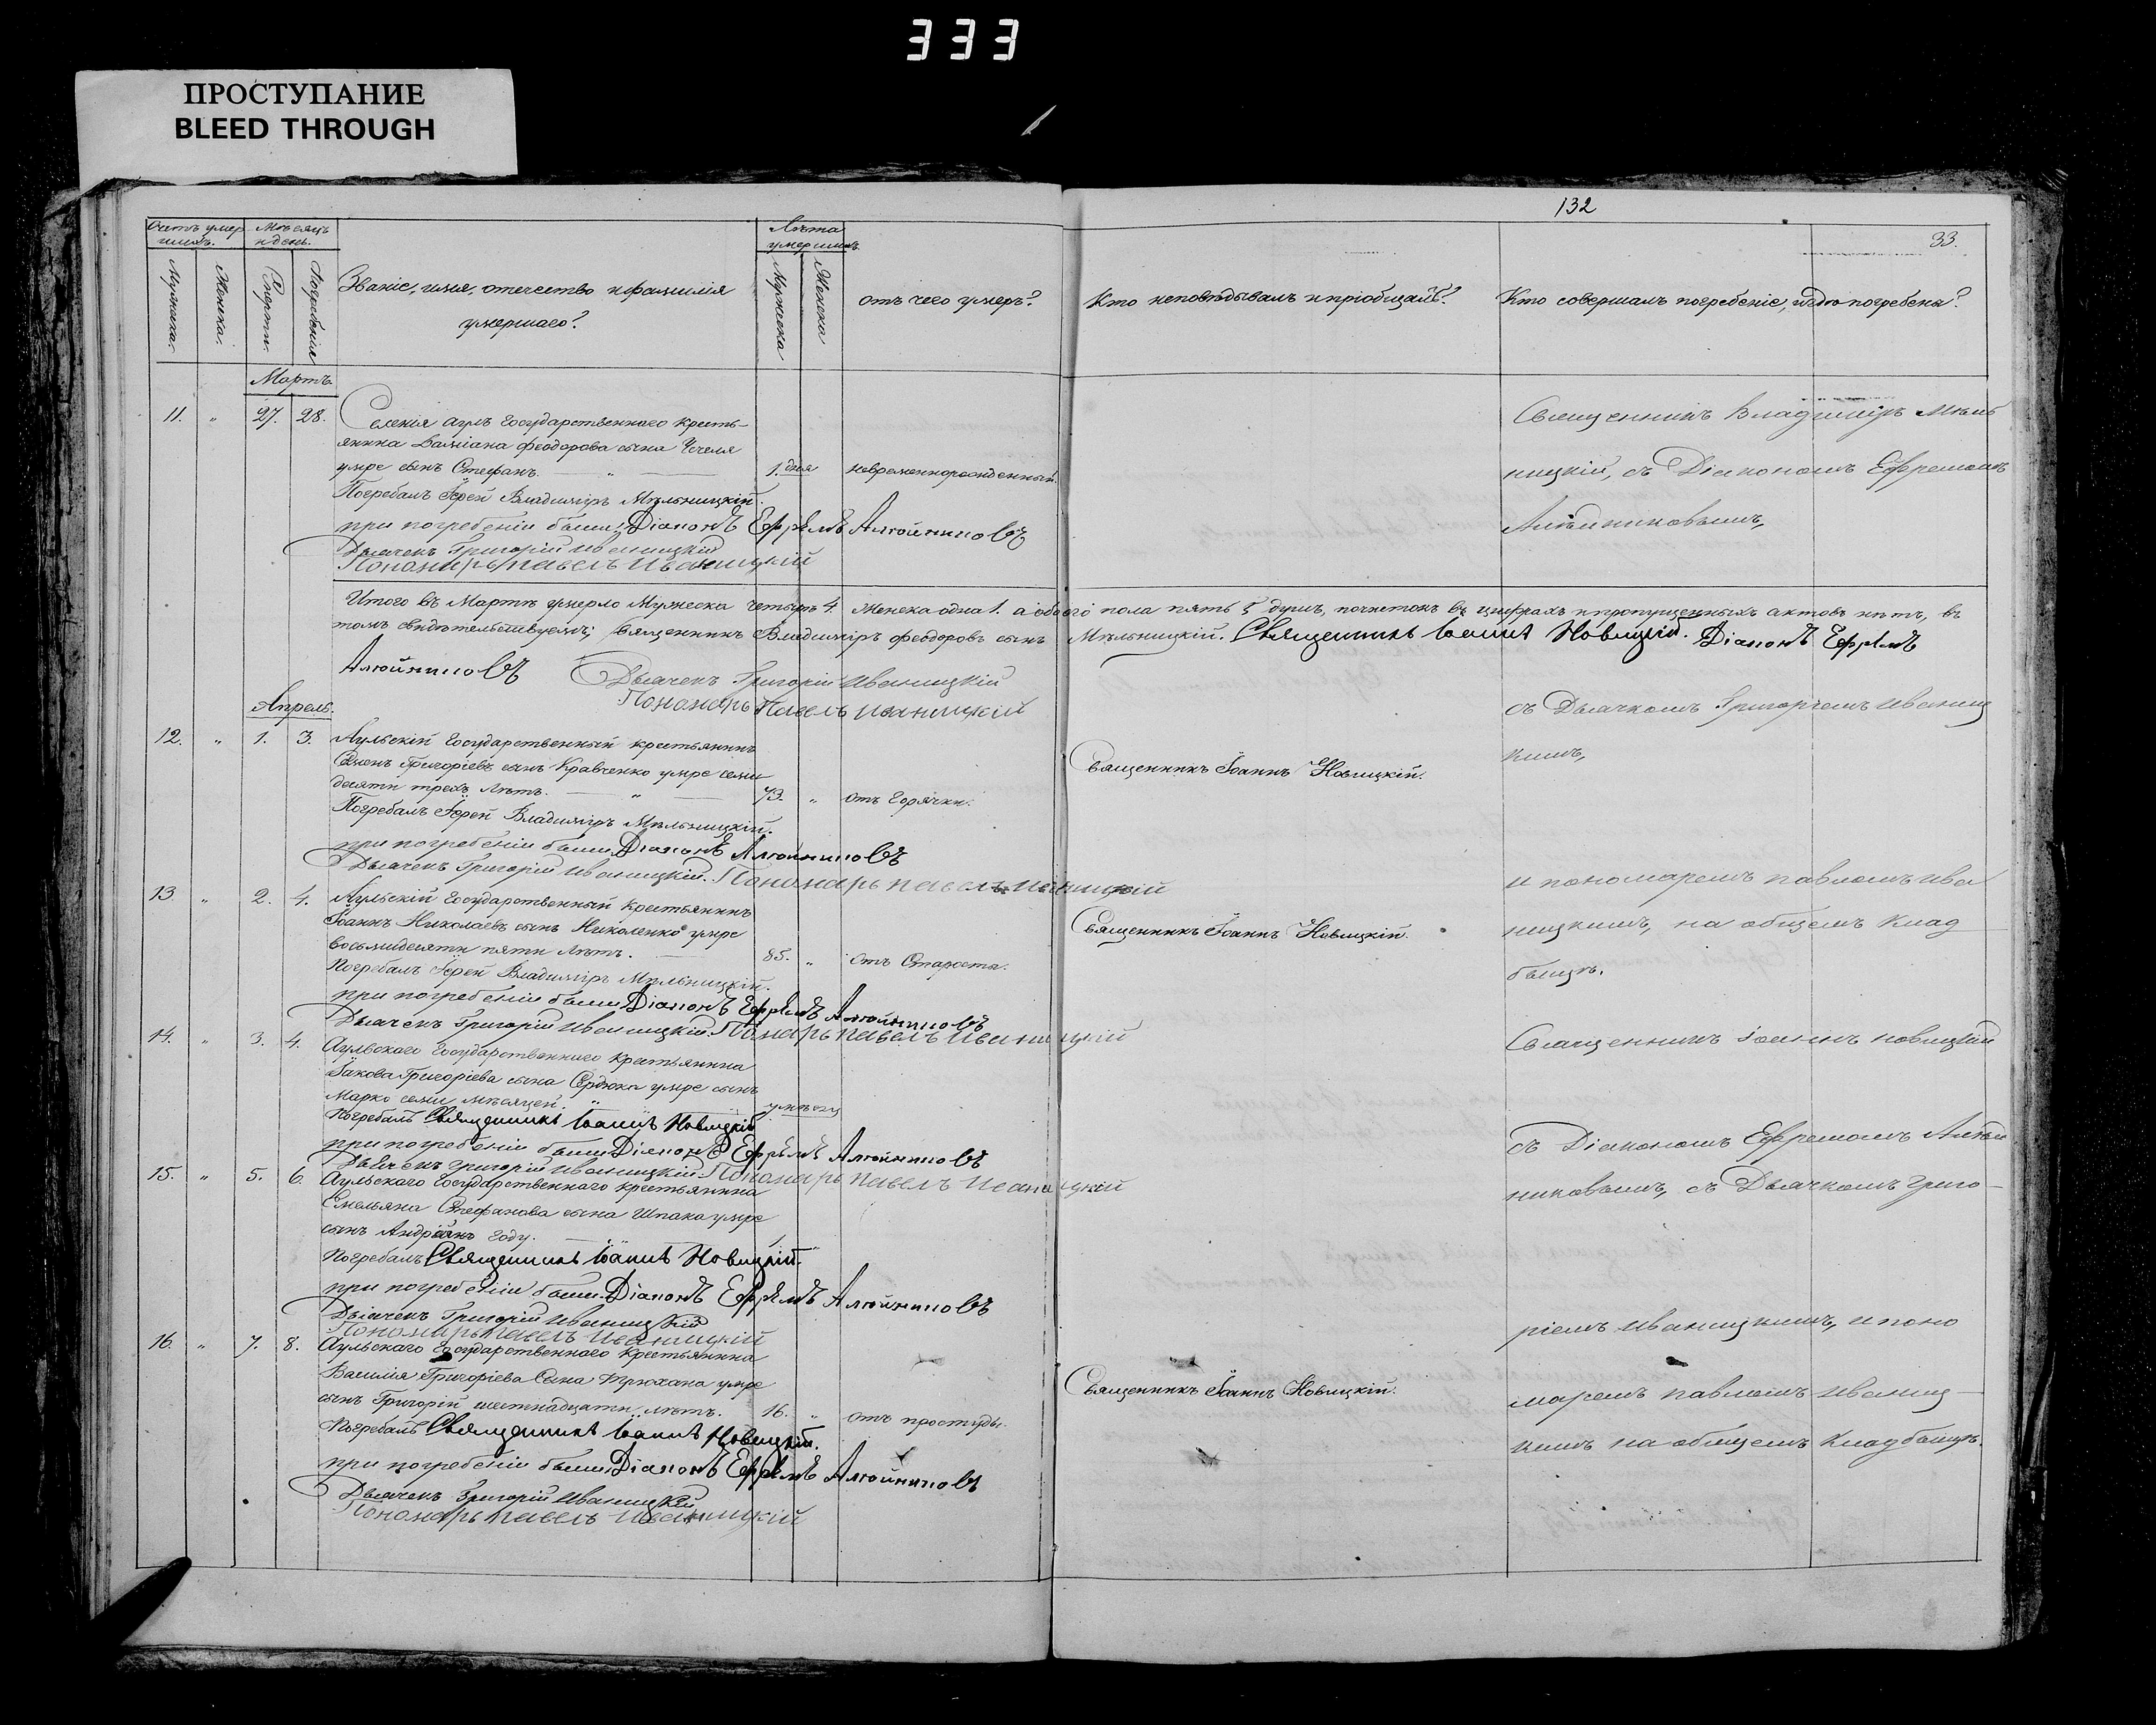 333
ПРОСТУПАНИЕ
BLEED THROUGH
132
33.
Счетъ умер
шихъ.
Мѣсяцъ
и день.
Лѣта
умершихъ
Мужеска.
Женска.
Смерти.
Погребенія
Званіе, имя, отечество и фамилія
умершаго?
Мужеска
Женска
отъ чего умеръ?
Кто исповѣдывалъ и пріобщалъ?
Кто совершалъ погребеніе, и гдѣ погребены?
Мартъ.
11. " 27. 28. Селенія Аулъ Государственнаго кресть-
янина Даміана Феодорова сына
умре сынъ Стефанъ. " 1. дня невременнорожденный.
Погребалъ Іерей Владиміръ Мѣльницкій.
при погребеніи были Діаконъ Ефремъ
Дьячекъ Григорій Иваницкій
Пономарь Павелъ Иваницкій
Священникъ Владиміръ Мѣль
ницкій, съ Діакономъ Ефремомъ
Итого въ Мартѣ умерло Мужеска четыре 4. Женска одна 1. а обоего пола пять 5 душъ, почистокъ въ цифрахъ и пропущенныхъ актовъ нѣтъ, въ
томъ свидѣтельствуемъ; Священникъ Владиміръ Феодоровъ сынъ Мѣльницкій. Священникъ Іоаннъ Новицкій. Діаконъ Ефремъ
Дьячекъ Григорій Иваницкій
Пономарь Павелъ Иваницкій
Апрель.
съ Дьячкомъ Григоріемъ Иваниц
кимъ,
12. " 1. 3. Аульскій Государственный крестьянинъ
Семенъ Григоріевъ сынъ Кравченко умре семи
десяти трехъ лѣтъ. " 73. " отъ Горячки.
Священникъ Іоаннъ Новицкій.
Погребалъ Іерей Владиміръ Мѣльницкій.
при погребеніи были Діаконъ
Дьячекъ Григорій Иваницкій. Пономарь Павелъ Иваницкій
13 " 2. 4. Аульскій Государственный крестьянинъ
Іоаннъ Николаевъ сынъ Николенко умре
восьмидесяти пяти лѣтъ. 85. " отъ Старости.
Священникъ Іоаннъ Новицкій.
и пономаремъ Павломъ Ива
ницкимъ, на общемъ клад
бищѣ.
Погребалъ Іерей Владиміръ Мѣльницкій.
при погребеніи были Діаконъ Ефремъ
Дьячекъ Григорій Иваницкій. Пономарь Павелъ Иваницкій
14. " 3. 4. Аульскаго Государственнаго крестьянина
Іакова Григоріева сына Сердюка умре сынъ
Марко семи мѣсяцей.
Погребалъ Священникъ Іоаннъ Новицкій
при погребеніи были Діаконъ Ефремъ
Дьячекъ Григорій Иваницкій. Пономарь Павелъ Иваницкій
Священникъ Іоаннъ Новицкій
съ Діакономъ Ефремомъ
никовымъ, съ Дьячкомъ Григо-
15. " 5. 6. Аульскаго Государственнаго крестьянина
Емельяна Стефанова сына Шпака умре
сынъ Андріянъ году.
Погребалъ Священникъ Іоаннъ Новицкій.
при погребеніи были Діаконъ Ефремъ
Дьячекъ Григорій Иваницкій
Пономарь Павелъ Иваницкій
ріемъ Иваницкимъ, и поно
16. " 7. 8. Аульскаго Государственнаго Крестьянина
Василія Григоріева Сына Трюхана умре
сынъ Григорій шестнадцати лѣтъ. 16. " отъ простуды.
Священникъ Іоаннъ Новицкій.
маремъ Павломъ Иваниц
кимъ на общемъ кладбищѣ.
Погребалъ Священникъ Іоаннъ Новицкій.
при погребеніи были Діаконъ Ефремъ
Дьячекъ Григорій Иваницкій
Пономарь Павелъ Иваницкій